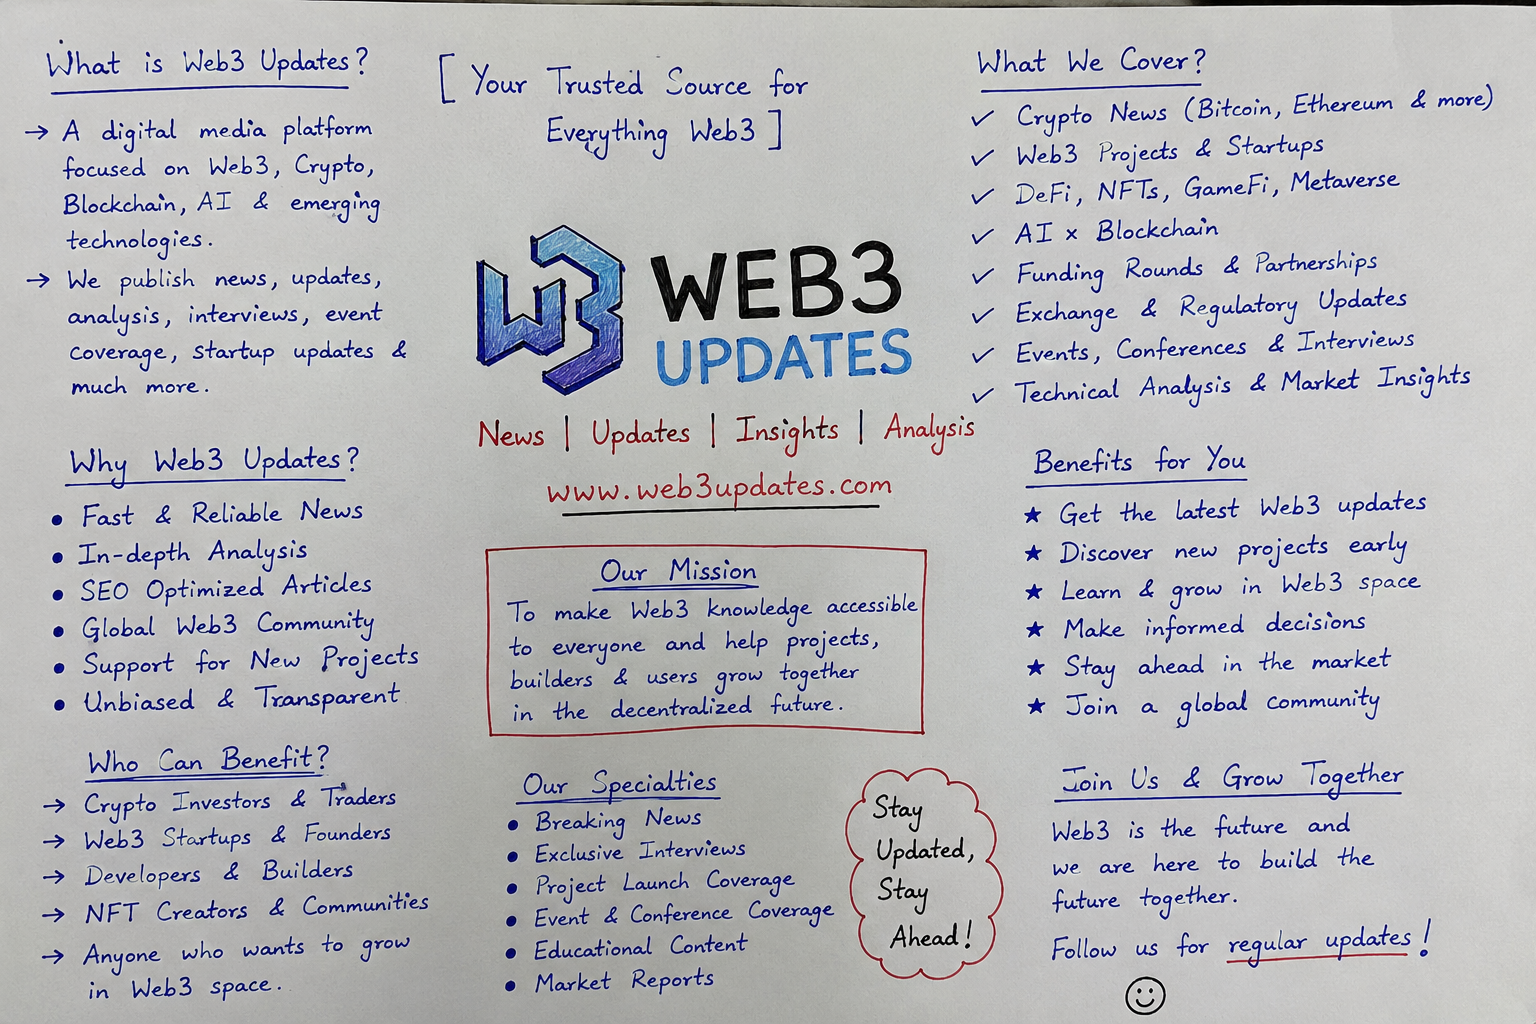 What is Web3 Updates?
→ A digital media platform
focused on Web3, Crypto,
Blockchain, AI & emerging
technologies.
→ We publish news, updates,
analysis, interviews, event
coverage, startup updates &
much more.
Why Web3 Updates?
• Fast & Reliable News
• In-depth Analysis
• SEO Optimized Articles
• Global Web3 Community
• Support for New Projects
• Unbiased & Transparent
Who Can Benefit?
→ Crypto Investors & Traders
→ Web3 Startups & Founders
→ Developers & Builders
→ NFT Creators & Communities
→ Anyone who wants to grow
in Web3 space.
[ Your Trusted Source for
Everything Web3 ]
W3
WEB3
UPDATES
News | Updates | Insights | Analysis
www.web3updates.com
Our Mission
To make Web3 knowledge accessible
to everyone and help projects,
builders & users grow together
in the decentralized future.
Our Specialties
• Breaking News
• Exclusive Interviews
• Project Launch Coverage
• Event & Conference Coverage
• Educational Content
• Market Reports
Stay
Updated,
Stay
Ahead!
What We Cover?
✓ Crypto News (Bitcoin, Ethereum & more)
✓ Web3 Projects & Startups
✓ DeFi, NFTs, GameFi, Metaverse
✓ AI × Blockchain
✓ Funding Rounds & Partnerships
✓ Exchange & Regulatory Updates
✓ Events, Conferences & Interviews
✓ Technical Analysis & Market Insights
Benefits for You
★ Get the latest Web3 updates
★ Discover new projects early
★ Learn & grow in Web3 space
★ Make informed decisions
★ Stay ahead in the market
★ Join a global community
Join Us & Grow Together
Web3 is the future and
we are here to build the
future together.
Follow us for regular updates!